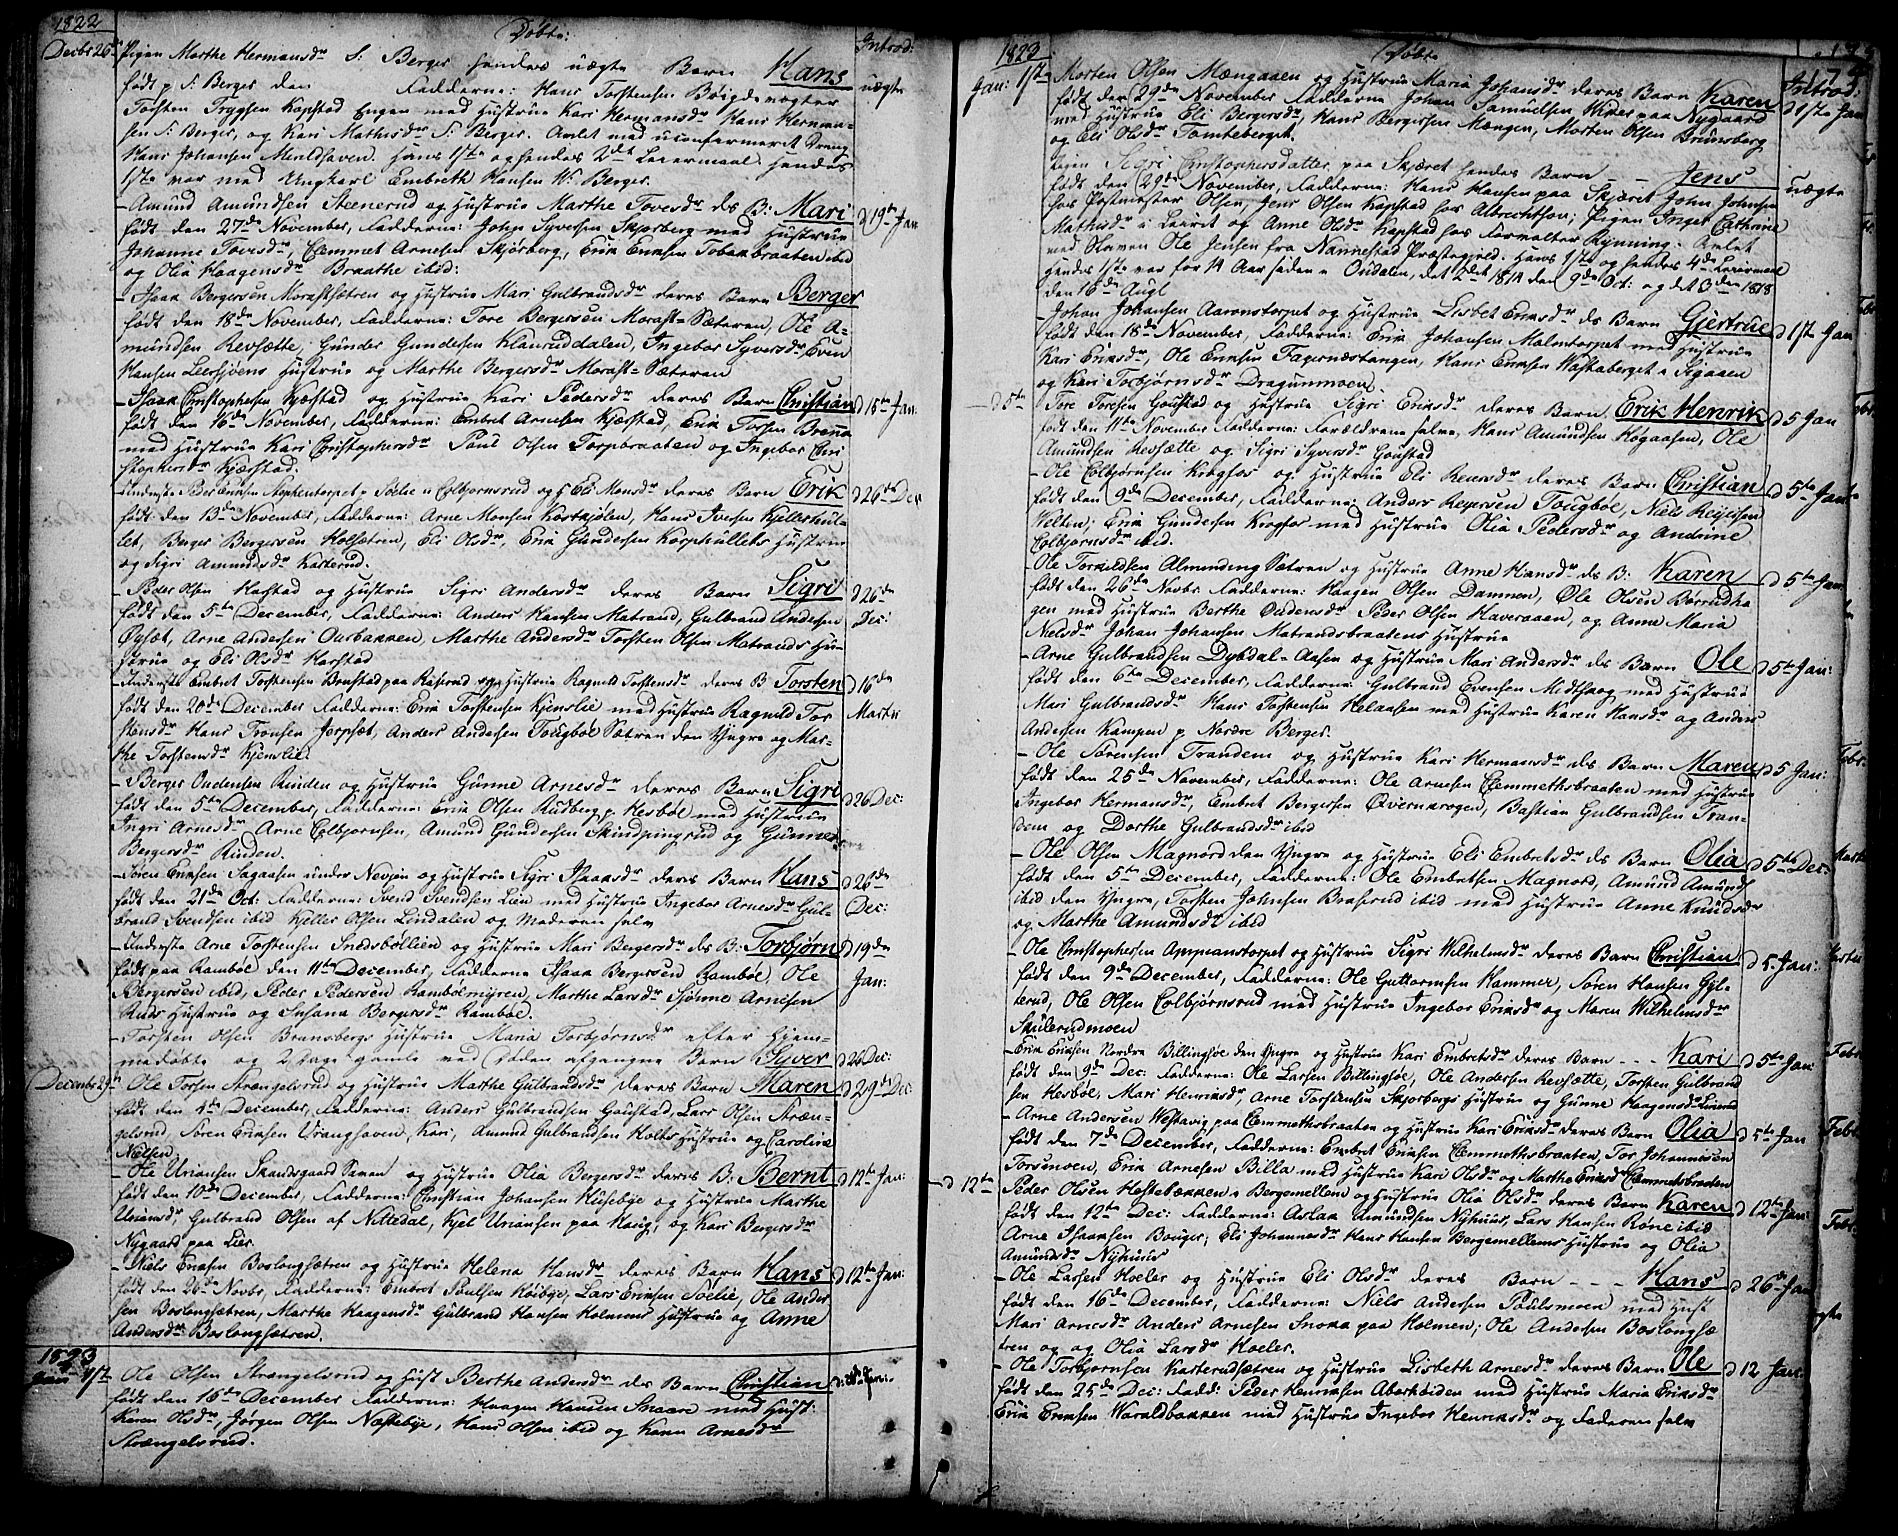 1822
Døbte:
Introd:
Decbr 26de Pigen Marthe Hermansdr S: Berger hendes uægte Barn Hans uægte
født p S: Berger den Fadderne: Hans Torstensen
Torsten Tryggsen Kopstad Engen med Hustrue Kari Hermansdr Hans Herman-
sen S: Berger, og Kari Mathisdr S: Berger. Avlet med uconfirmeret Dreng
Hans Johansen Hans 1ste og hendes 2det Leiermaal. Hendes
1ste var med Ungkarl Embreth Hansen N: Berger.
- Amund Amundsen Steenerud og Hustrue Marthe Tovesdr ds B: Mari d 19de Jan
født den 27de November, Fadderne: John Syversen Skjørberg med Hustrue
Johanne Tovesdr, Clemmet Arnesen Skjørberg, Erik Eriksen Tobakbraaten ibid
og Olia Haagensdr Braathe ibid:
- Isaak Bergersen Morastsætren og Hustrue Mari Gulbrandsdr deres Barn Berger
født den 18de November, Fadderne: Tore Bergersen Morast-Sæteren, Ole A-
mundsen Revsætte, Gunder Gundersen Klanruddalen, Ingebor Syversdr Even
Hansen Leersjøens Hustrue og Marthe Bergersdr Morast-Sæteren
- Isaak Christophersen Kjæstad og Hustrue Kari Pedersdr deres Barn Christian d 15de Jan:
født den 16de November, Fadderne: Embret Arnesen Kjerstad, Erik Torsen
med Hustrue Kari Christophersdr Poul Olsen Torpbraaten og Ingebor Chri
stophersdr Kjærstad.
deres Barn Erik d 26de Dec
født den 13de November, Fadderne: Arne Monsen Kostkjølen, Hans Iversen Kjellerhul-
let, Berger Bergersen Holsætren, Eli Olsdr, Erik Gundersen Hustrue
og Sigri Amundsdr Kasterud.
- Peder Olsen Harstad og Hustrue Sigri Andersdr deres Barn Sigri d 26de
født den 5te December, Fadderne: Anders Hansen Matrand, Gulbrand Andersen Dec:
Øysæt, Arne Andersen Ourbakken, Marthe Andersdr Torsten Olsen Matrands Hu-
strue og Eli Olsdr Harstad
- Inderste Embret Torstensen paa og Hustrue Ragnild Torstensdr deres B Torsten d 16de
født den 20de December Fadderne: Erik Torstensen Kjenslie med Hustrue Ragnild Tor Martii
stensdr Hans Tronsen Jerpset, Anders Andersen Tougbøl Sætren den Yngre og Mar-
the Torstensdr Kjenslie.
- Berger Oudensen Rinden og Hustrue Gunne Arnesdr deres Barn Sigri d 26 Dec:
født den 5te December, Fadderne: Erik Olsen Rudberg p. Hesbøl med Hustrue
Ingri Arnesdr Arne Colbjørnsen, Amund Gundersen og Gunne
Bergersdr Rinden.
- Søren Eriksen Sagaasen under Nevsen og Hustrue Sigri Isaaksdr deres Barn Hans d 26de
født den 21de Oct: Fadderne: Svend Svendsen Lien med Hustrue Ingebor Arnesdr Gul- Dec:
brand Svendsen ibid Olsen Lindalen og Moderen selv
- Inderste Arne Torstensen og Hustrue Mari Bergersdr ds B: Torbjørn d 19de
født paa Rambøl den 11te December, Fadderne Isaak Bergersen Rambøl, Ole Jan:
Bergersen ibid, Peder Pedersen Rambølmyren, Marthe Larsdr Arnesen
Ruds Hustrue og Susana Bergersdr Rambøl.
- Torsten Olsen Brunsbergs Hustrue Maria Torbjørnsdr efter Hjem-
medøbte og 2 Dage gamle ved Døden afgangne Barn Syver d 26 Dec:
December 29de - Ole Torsen Strængelsrud og Hustrue Marthe Gulbrandsdr deres Barn Maren d 29de Dec:
født den 4de December, Fadderne: Anders Gulbrandsen Goustad, Lars Olsen Stræn-
gelsrud, Søren Eriksen Vranghaven, Kari, Amund Gulbrandsen Holts Hustrue og Carolina
Nielsen
- Ole Uriansen Skandsgaard og Hustrue Olia Bergersdr deres B: Bernt d 12te Jan:
født den 10de December, Fadderne: Christian Johansen Husebye og Hustrue Marthe
Uriansdr, Gulbrand Olsen af Nittedal, Kjel Uriansen paa Haug, og Kari Bergersdr
Nygaard paa Lier
- Niels Eriksen Boslongsætren og Hustrue Helena Hansdr deres Barn Hans d 12te Jan:
født den 26de Novbr, Fadderne: Embret Poulsen Kiøbye, Lars Eriksen Sølie, Ole Ander
sen Boslongsætren, Marthe Haagensdr Gulbrand Hansen Holmens Hustrue og Anne
Andersdr Boslongsætren.
1823
Jan 1ste Ole Olsen Strængelsrud og Hust Berthe Andersdr des Barn Christian
født den 16de December Fadderne: Haagen Hansen Snaare med Hust:
Karen Olsdr, Jørgen Olsen Næstebye, Hans Olsen ibid og Karen Arnesdr
Strængelsrud.
1823
Døbte
Introd:
Jan: 1ste Morten Olsen Mængaaen og Hustrue Maria Johansdr deres Barn Karen d 1ste Jan
født den 29de November Fadderne Johan Samuelsen paa Nygaard
med Hustrue Eli Bergersdr, Hans Bergersen Mængen, Morten Olsen Brunsberg
og Eli Olsdr Tomteberget.
Pigen Sigri Christophersdatter paa Skjæret hendes Barn - - Jens uægte
født den 29de November, Fadderne: Hans Hansen paa Skjæret John Johnsen
hos Postmester Olsen, Jens Olsen Kopstad hos Albrechtson; Pigen Inger Cathrine
Mathisdr i Leiret og Anne Olsdr Kopstad hos Forvalter Rynning. Avlet
med Ole Jensen fra Nannestad Præstegjeld. Hans 1ste og hendes 4de Leiermaal
Hendes 1ste var for 14 Aar siden i Oudalen, det 2det 1814 den 9de Oct: og det 3de 1818
den 16de Augl
- Johan Johansen Aarnestorpet og Hustrue Lisbet Eriksdr ds Barn Gjertrue d 1ste Jan
født den 18de November, Fadderne: Erik Johansen Malmtorpet med Hustrue
Kari Eriksdr, Ole Eriksen Fagernæstangen, Hans Eriksen Wastaberget i Sigaaen
og Kari Torbjørnsdr Dragunmoen
- d 5te Tore Toresen Goustad og Hustrue Sigri Eriksdr deres Barn Erik Henrik d 5 Jan
født den 11te November Fadderne: Forældrene selve, Hans Amundsen Høgaasen, Ole
Amundsen Revsætte og Sigri Syversdr Goustad
- Ole Colbjørnsen Krogfos og Hustrue Eli Reiersdr deres Barn Christian d 5te Jan
født den 9de December, Fadderne: Anders Reiersen Tougbøl, Niels Reiersen
Velten; Erik Gundersen Krogfos med Hustrue Olia Pedersdr og Andrine
Colbjørnsdr ibid.
- Ole Torkildsen Almunding Sætren og Hustrue Anne Hansdr ds B: Karen d 5te Jan:
født den 26de Novbr. Fadderne: Haagen Olsen Dammen, Ole Olsen Børrudha
gen med Hustrue Berthe Oudensdr Peder Olsen Haveraaen, og Anne Maria
Nielsdr Johan Johansen Matrandsbraatens Hustrue
- Arne Gulbrandsen Dybdal-Aasen og Hustrue Mari Andersdr ds Barn Ole d 5te Jan:
født den 6te December, Fadderne: Gulbrand Evensen Midtskog med Hustrue
Mari Gulbrandsdr Hans Torstensen Helaasen med Hustrue Karen Hansdr og Anders
Andersen Kampen p Nordre Berger.
- Ole Sørensen Trandem og Hustrue Kari Hermansdr ds Barn Maren d 5 Jan:
født den 25de November, Fadderne: Ole Arnesen Clemmetsbraaten med Hustrue
Ingebor Hermansdr, Embret Bergersen Overnkrogen, Bastian Gulbrandsen Tran-
dem og Dorthe Gulbrandsdr ibid
- Ole Olsen Magnord den Yngre og Hustrue Eli Embretsdr ds Barn Olia d 5te Dec:
født den 5te December, Fadderne: Ole Embretsen Magnord, Amund Amunds
ibid den Yngre, Torsten Johnsen Braserud ibid med Hustrue Anne Knudsdr
og Marthe Amundsdr ibid
- Ole Christophersen Appmanstorpet og Hustrue Sigri Wilhelmsdr deres Barn Christian d 5. Jan:
født den 9de December, Fadderne: Ole Guttormsen Hammer, Søren Hansen Gjil-
terud, Ole Olsen Colbjørnsrud med Hustrue Ingebor Eriksdr og Maren Wilhelmsdr
Skulerudmoen
Erik Eriksen Nordre Billingsøe den Yngre og Hustrue Kari Embretsdr deres Barn - - - Kari d 5te Jan
født den 9de Dec: Fadderne: Ole Larsen Billingsøe, Ole Andersen Revsætte, Torsten Gulbrand
sen Hesbøl, Mari Henriksdr, Arne Torstensen Skjørbergs Hustrue og Gunne Haagensdr
- Arne Andersen Westavig paa Clemmetsbraaten og Hustrue Kari Eriksdr deres Barn Olia d 5te Jan
født den 7de December, Fadderne: Embret Eriksen Clemmetsbraaten, Tor Johannesen
Torsmoen, Erik Arnesen Billa med Hustrue Kari Olsdr og Marthe Eriksdr Clemmetsbraaten
- d 12te Peder Olsen Hestebækken i Bergemellem og Hustrue Olia Olsdr deres Barn Karen d 12te Jan:
født den 12te Dec: Fadderne: Aslak Amundsen Nyhuus, Lars Hansen ibid
Arne Isaaksen Bouger; Eli Johannesdr Hans Hansen Bergemellems Hustrue og Olia
Amundsdr Nyhuus
- Ole Larsen Hoeler og Hustrue Eli Olsdr deres Barn - - - Hans d 26de Jan
født den 16de December, Fadderne: Niels Andersen Poulsmoen med Hust
Mari Arnesdr Anders Arnesen Snoka paa Holmen; Ole Andersen Boslongsæ
tren og og Olia Larsdr Hoeler.
- Ole Torbjørnsen Kasterudsætren og Hustrue Lisbeth Arnesdr deres Barn Ole d 12 Jan:
født den 25de Dec: Fadd: Peder Henriksen Aborhøiden med Hustrue Maria Eriksdr
Erik Eriksen Waraldbakken med Hustrue Ingebor Henriksdr og Faderen selv